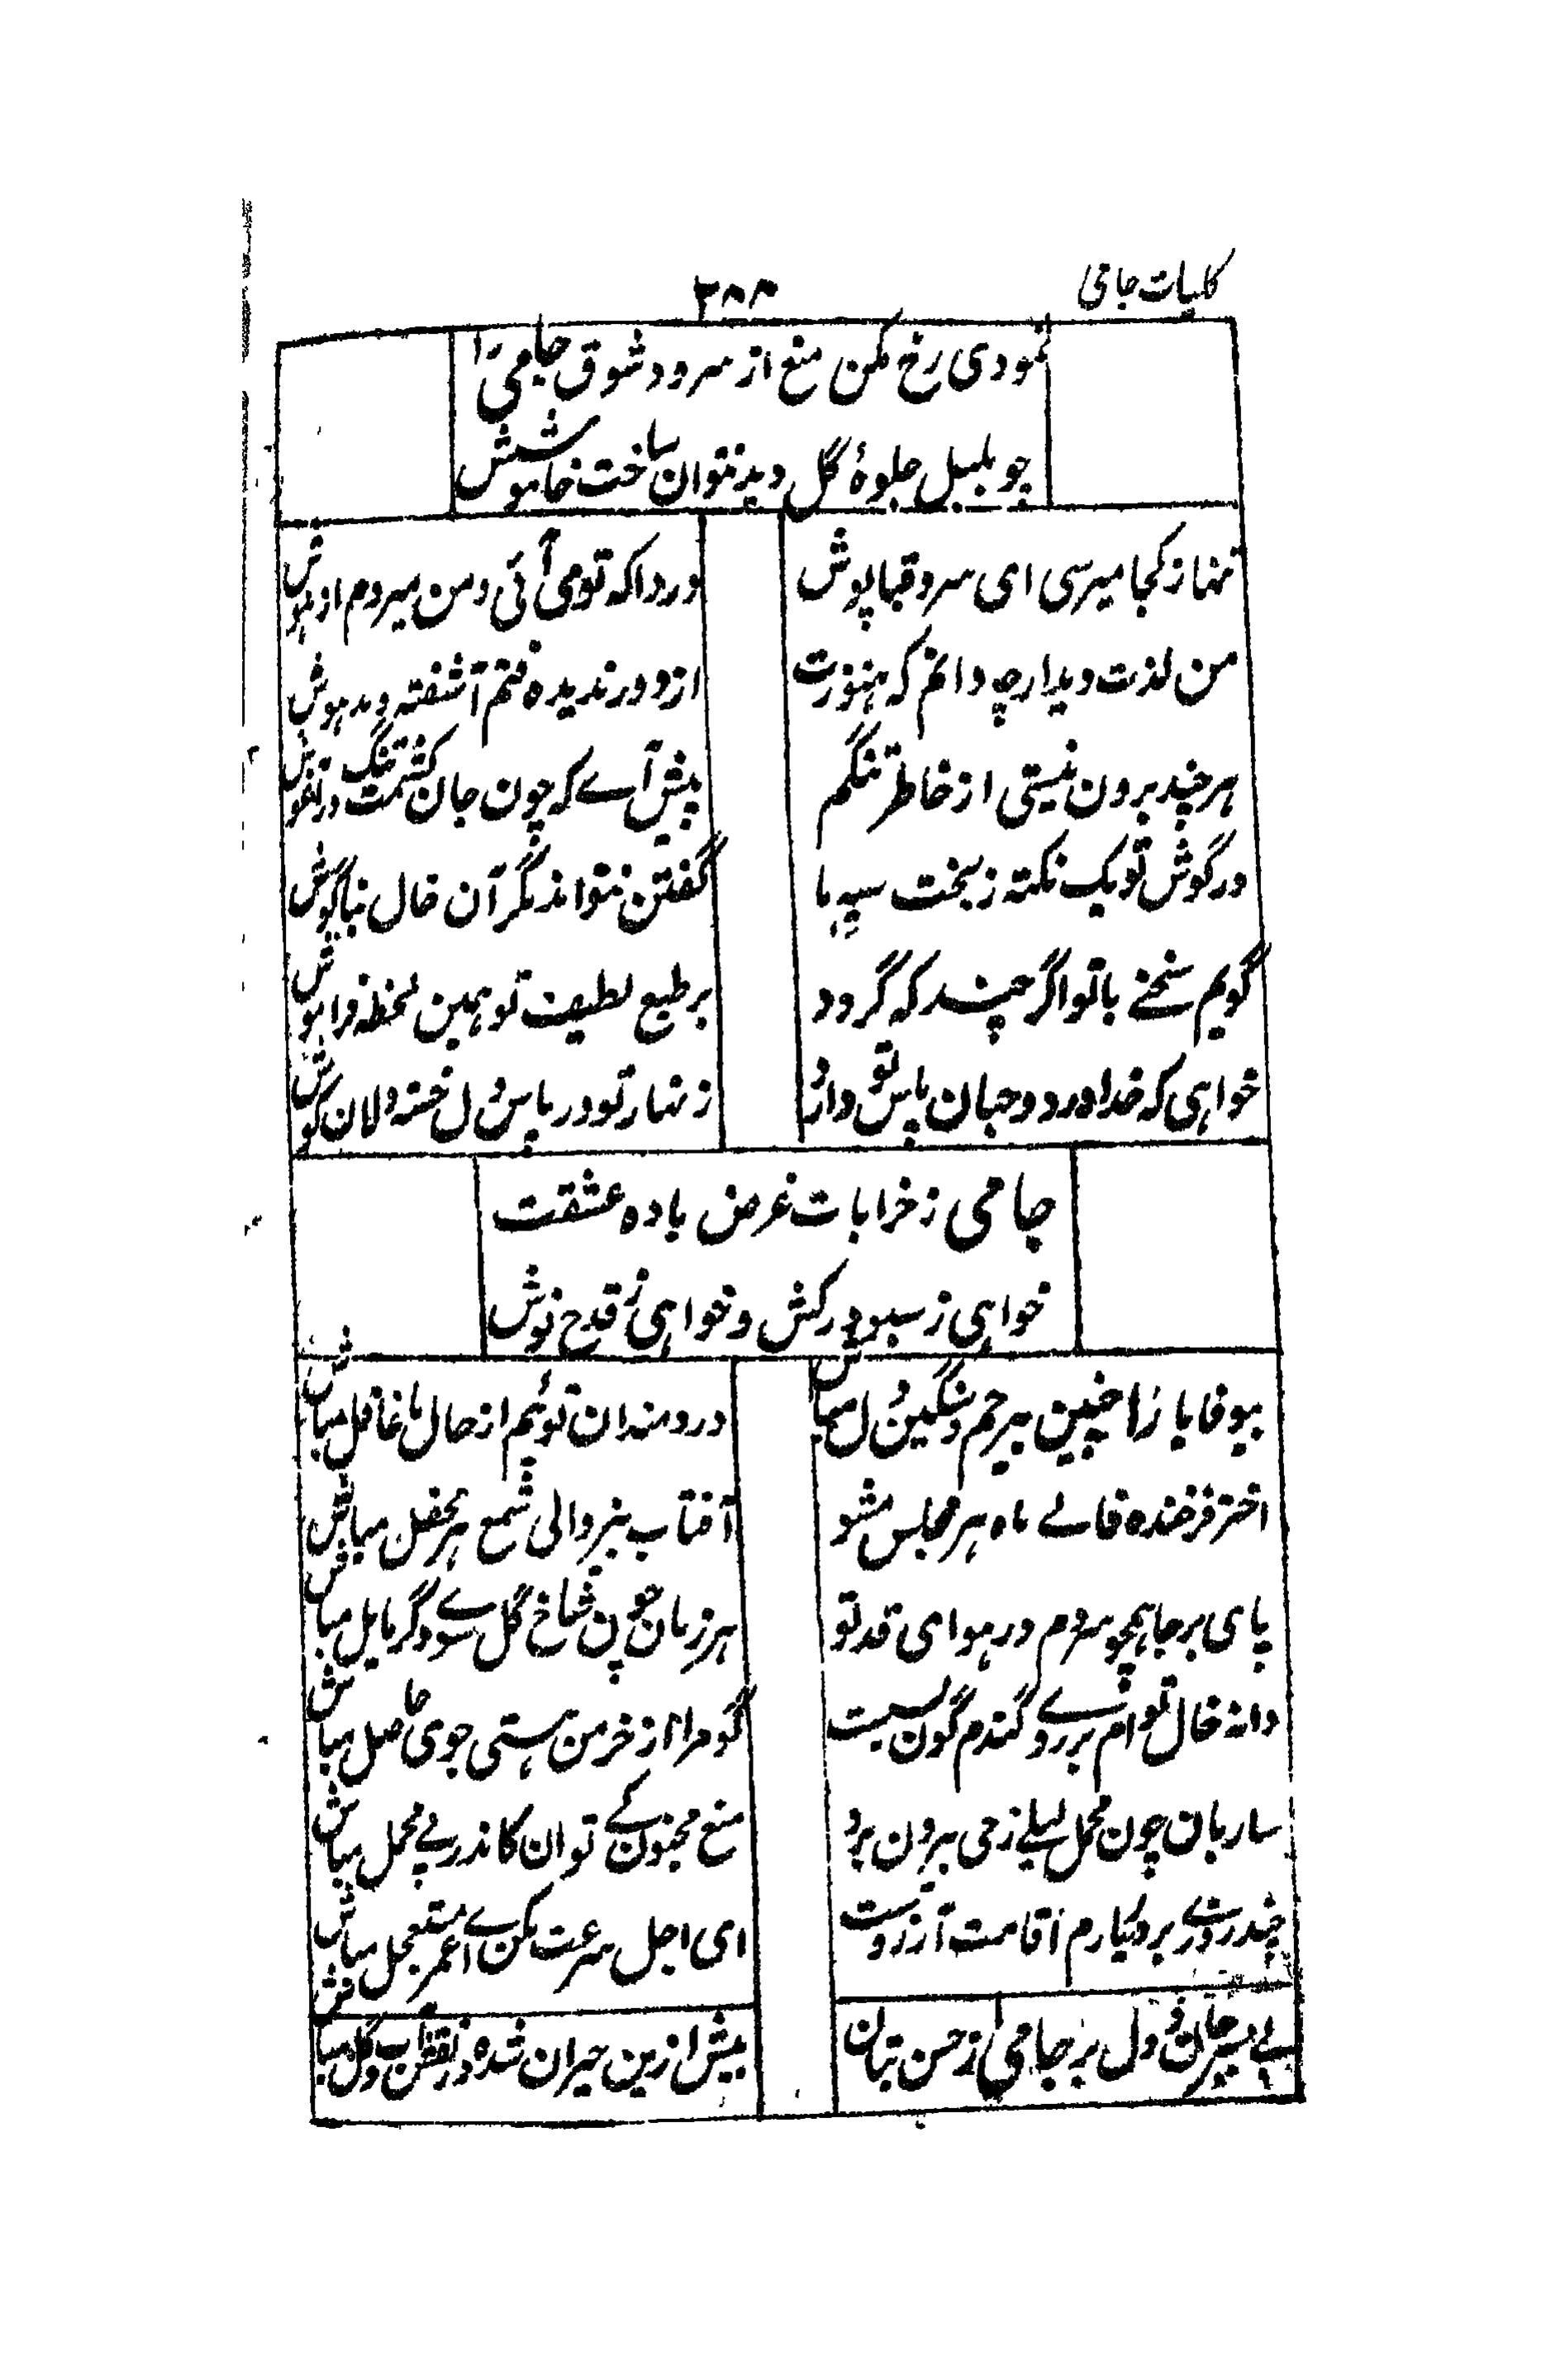 کلیات جامی
۳۸۸
نمودی رخ مکن منع از سرود شوق جامی را
چو بلبل جلوهٔ گل دید نتوان ساخت خاموشش
تنها ز کجا میرسی ای سرو قباپوش
دردا که تو می آئی و من میروم از هوش
من لذت دیدار چه دانم که هنوزت
از دور ندیده فتم آشفته و مدهوش
هر چند برون نیستی از خاطر تنگم
پیش آے که چون جان کشمت تنگ در آغوش
در گوش تو یک نکته ز بخت سیه ما
گفتن نتواند مگر آن خال بناگوش
گویم سخنے با تو اگر چند که گردد
بر طبع لطیف تو همین لحظه فراموش
خواهی که خدا در دو جهان پاس تو دارد
زنهار تو در پاس دل خسته دلان کوش
جامی ز خرابات غرض باده عشقت
خواهی ز سبو درکش و خواهی ز قدح نوش
بیوفا یارا چنین بیرحم و سنگین دل مباش
دردمندان توئیم از حال ما غافل مباش
اختر فرخنده فالے ماه هر مجلس مشو
آفتاب بیزوالی شمع هر محفل مباش
پای بر جا همچو سروم در هوای قد تو
هر زمان چون شاخ گل سوے دگر مایل مباش
دانه خال توام بر روے گندم گون بست
گو مرا از خرمن هستی جوی حاصل مباش
ساربان چون محمل لیلے ز حی بیرون برد
منع مجنون کے توان کاندر پے محمل مباش
چند روزے بر در یارم اقامت آرزوست
ای اجل سرعت مکن اے عمر مستعجل مباش
جان و دل بر جامی از حسن بتان
بیش ازین حیران شده در نقش آب و گل مباش